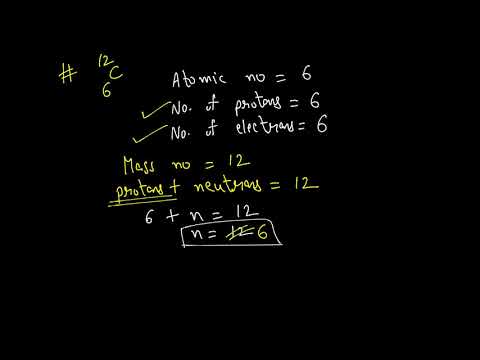 # ¹²₆C
Atomic no = 6
No. of protons = 6
No. of electrons = 6
Mass no = 12
protons + neutrons = 12
6 + n = 12
n = ~~12~~ 6